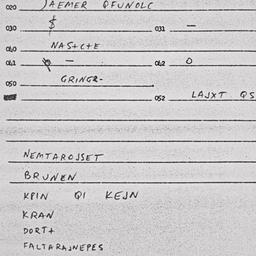 020 JAEMER QFUNOLC
030 $ 031 —
040 NAS+C+E
041 — 042 O
050 GRINGR-
052 LAJXT QS
NEMTAROJSET
BRUNEN
KPIN QI KEJN
KRAN
DORT+
FALTARAJNEPES